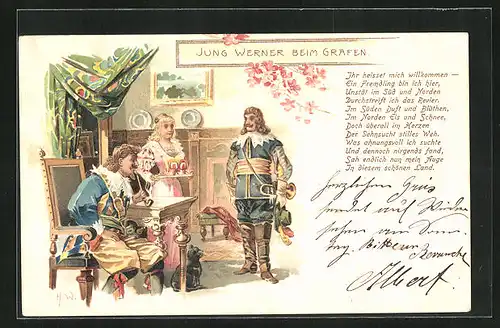 JUNG WERNER BEIM GRAFEN.
Ihr heisset mich willkommen –
Ein Fremdling bin ich hier,
Unstät im Süd und Norden
Durchstreift ich das Revier.
Im Süden Duft und Blüthen,
Im Norden Eis und Schnee,
Doch überall im Herzen
Der Sehnsucht stilles Weh.
Was ahnungsvoll ich suchte
Und dennoch nirgends fand,
Sah endlich nun mein Auge
In diesem schönen Land.
Herzlichen Grus
sendet auf Wieder
sehen am Sonn
tag. Bitte um Revanche
Albert.
H.W.